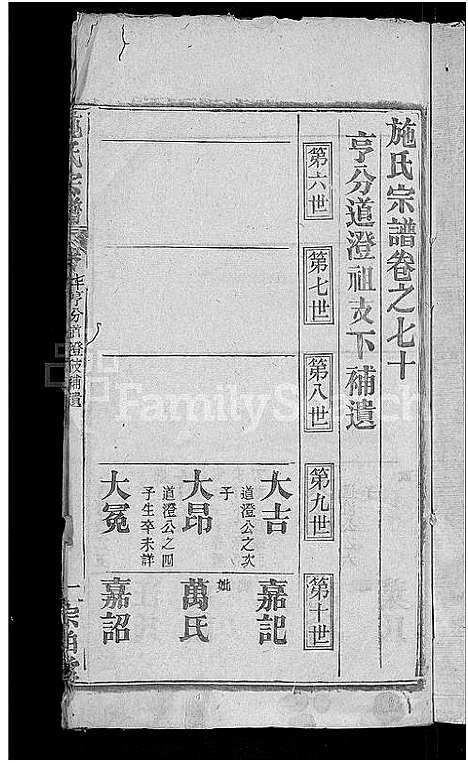 施氏宗譜卷之七十
亨分道澄祖支下補遺
第六世
第七世
第八世
第九世
第十世
大吉
道澄公之次
子
嘉記
大昂
道澄公之四
子生卒未詳
妣
萬氏
大冕
嘉詔
施氏宗譜
亨分道澄支補遺
FamilySearch